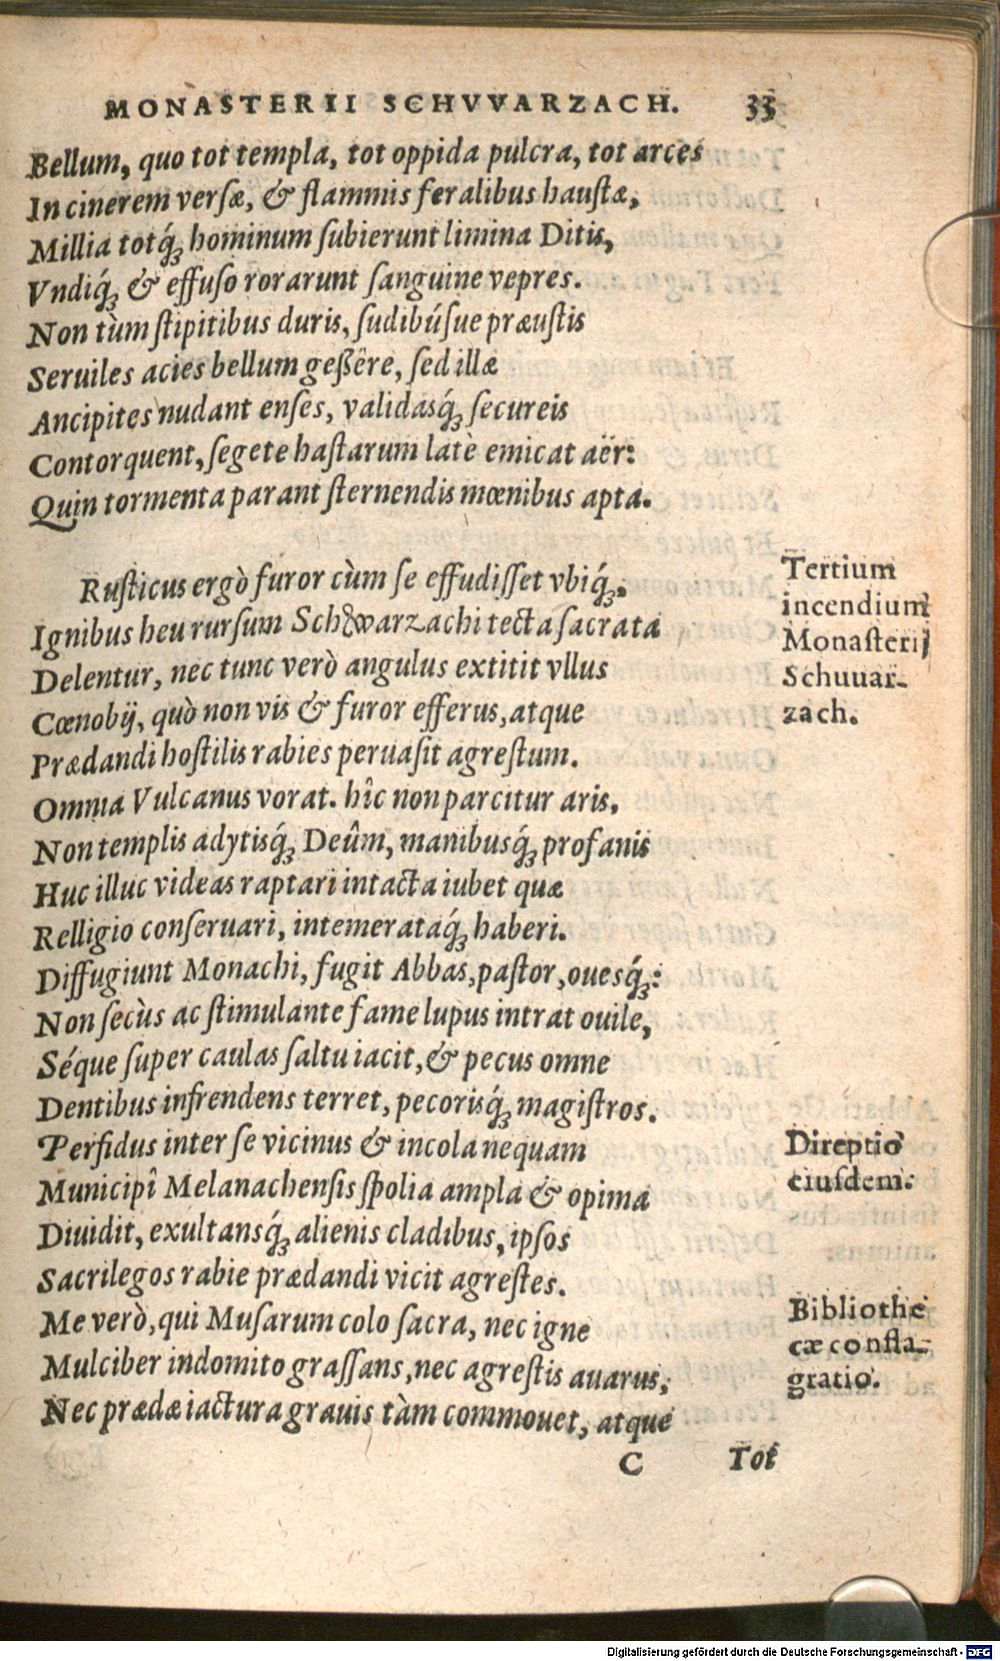 MONASTERII SCHVVARZACH. 33
Bellum, quo tot templa, tot oppida pulcra, tot arces
In cinerem versæ, & flammis feralibus haustæ,
Millia totq́ꝫ hominum subierunt limina Ditis,
Vndiq́ꝫ & effuso rorarunt sanguine vepres.
Non tùm stipitibus duris, sudibúsue præustis
Seruiles acies bellum geßêre, sed illæ
Ancipites nudant enses, validasq́ꝫ secureis
Contorquent, segete hastarum latè emicat aër:
Quin tormenta parant sternendis mœnibus apta.
Rusticus ergò furor cùm se effudisset vbiq́ꝫ,
Ignibus heu rursum Schwarzachi tecta sacrata
Delentur, nec tunc verò angulus extitit vllus
Cœnobij, quò non vis & furor efferus, atque
Prædandi hostilis rabies peruasit agrestum.
Omnia Vulcanus vorat. hîc non parcitur aris,
Non templis adytisq́ꝫ Deûm, manibusq́ꝫ profanis
Huc illuc videas raptari intacta iubet quæ
Relligio conseruari, intemerataq́ꝫ haberi.
Diffugiunt Monachi, fugit Abbas, pastor, ouesq́ꝫ:
Non secùs ac stimulante fame lupus intrat ouile,
Séque super caulas saltu iacit, & pecus omne
Dentibus infrendens terret, pecorisq́ꝫ magistros.
Perfidus inter se vicinus & incola nequam
Municipî Melanachensis spolia ampla & opima
Diuidit, exultansq́ꝫ alienis cladibus, ipsos
Sacrilegos rabie prædandi vicit agrestes.
Me verò, qui Musarum colo sacra, nec igne
Mulciber indomito grassans, nec agrestis auarus,
Nec prædæ iactura grauis tàm commouet, atque
C Tot
Tertium
incendium
Monasterij
Schuuar-
zach.
Direptio
eiusdem.
Bibliothe
cæ confla-
gratio.
Digitalisierung gefördert durch die Deutsche Forschungsgemeinschaft - DFG